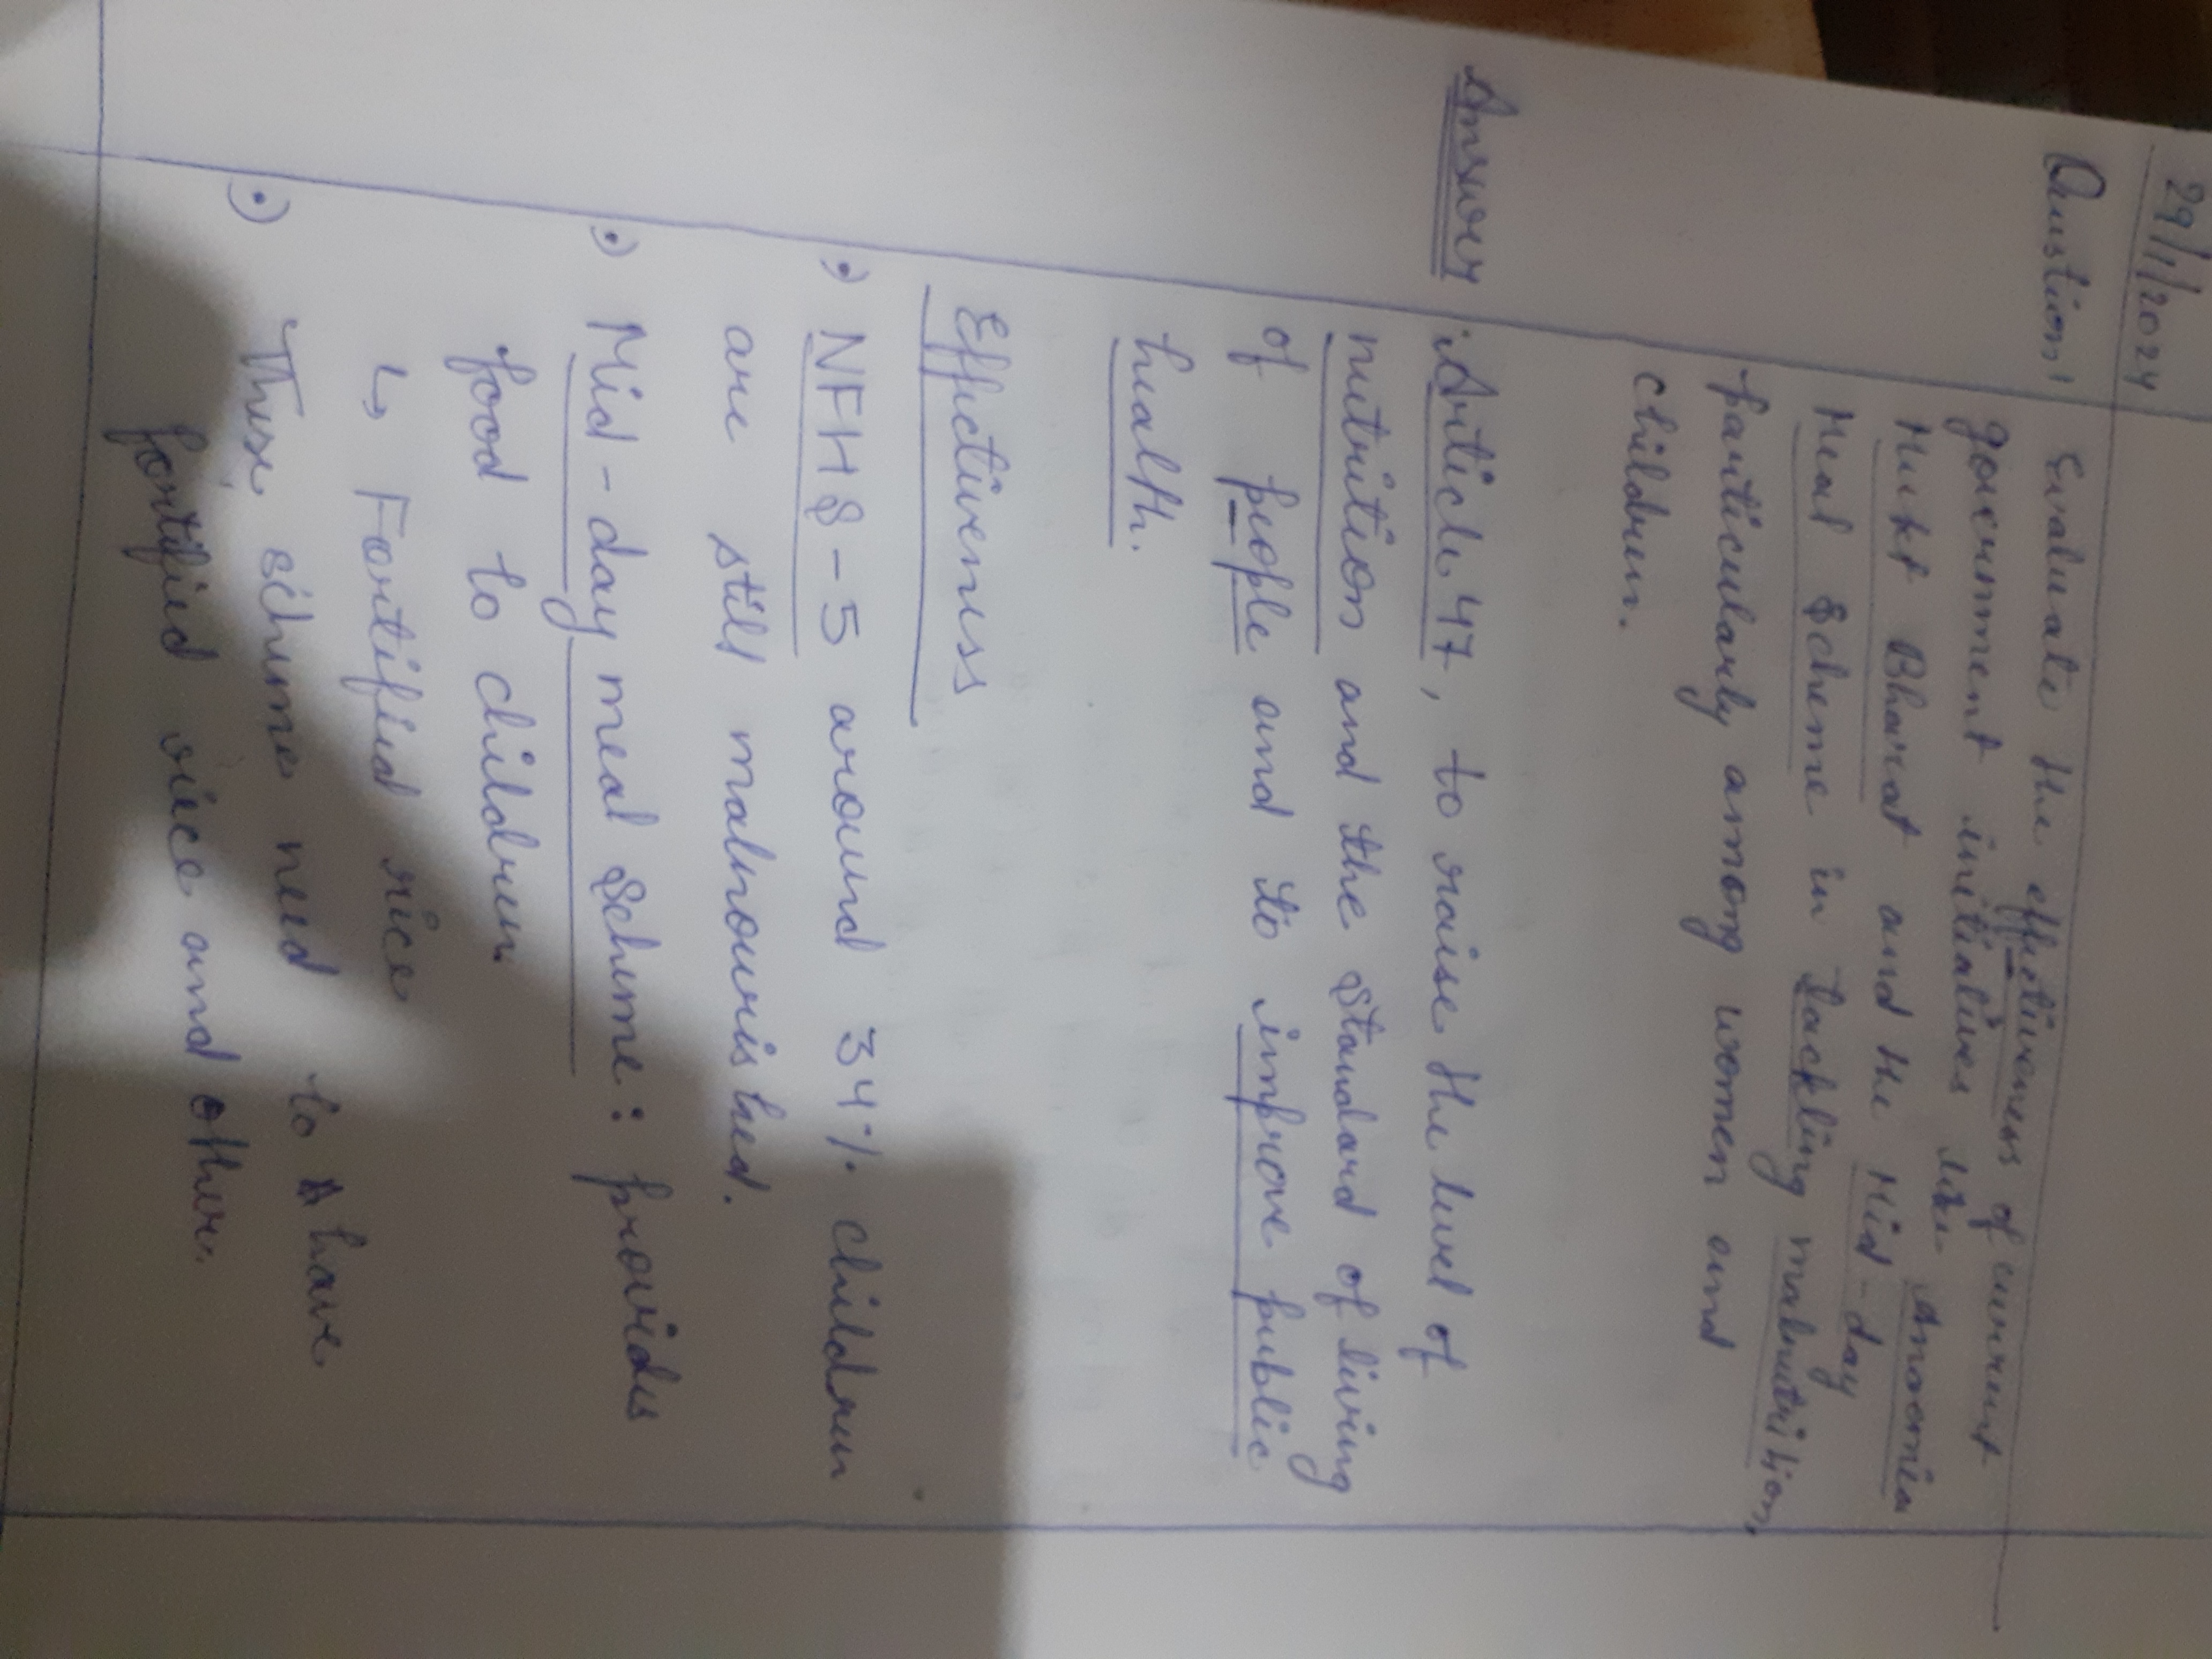 29/1/2024
Question1 Evaluate the effectiveness of current
government initiatives like Anaemia
Mukt Bharat and the Mid-day
Meal Scheme in tackling malnutrition,
particularly among women and
children.
Answer Article 47, to raise the level of
nutrition and the standard of living
of people and to improve public
health.
Effectiveness
•) NFHS-5 around 34% children
are still malnourished.
•) Mid-day meal Scheme: provides
food to children
↳ Fortified rice
•) These scheme need to have
fortified rice and other.